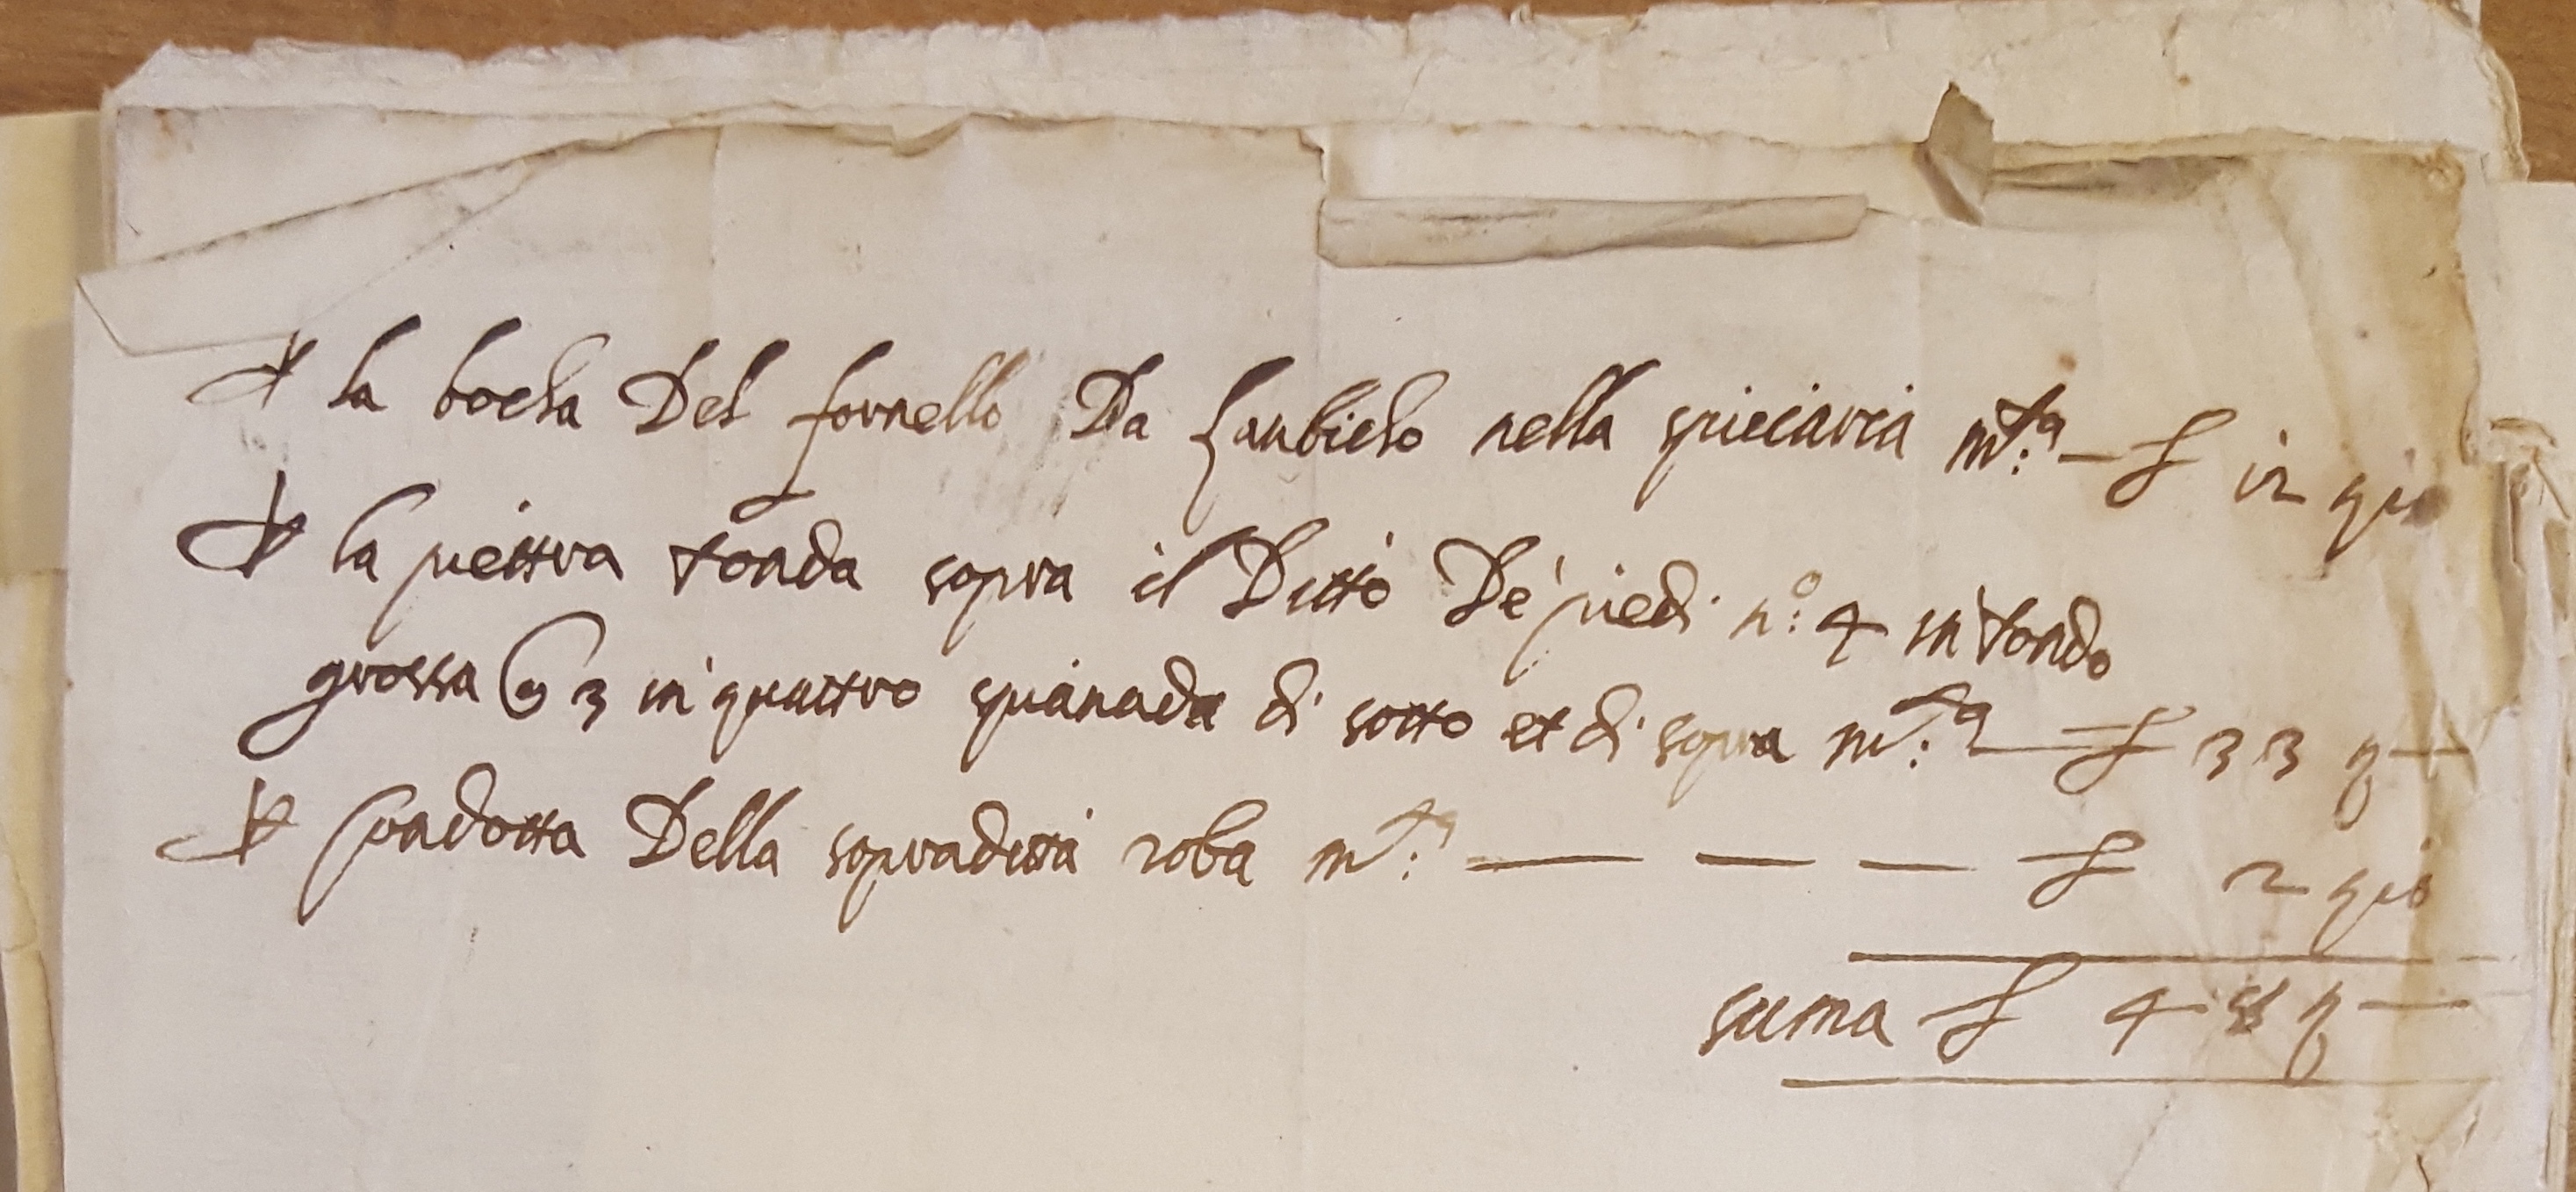 P la bocha Del fornello Da Lanbicho nella spiciaria m.ta — £ 12 g 10
P la piettra tonda sopra il Ditto De piedi n.o 4 in tondo
grossa 3 in quattro spianada di sotto et di sopra m.ta — £ 33 g —
P condotta Della sopraditta roba m.ta — — — £ 2 g 10
suma £ 48 g —